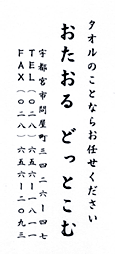 タオルのことならお任せください
おたおる どっとこむ
宇都宮市問屋町三四二六ー四七
TEL(〇二八)六五六ー一八一一
FAX(〇二八)六五六ー二〇九三